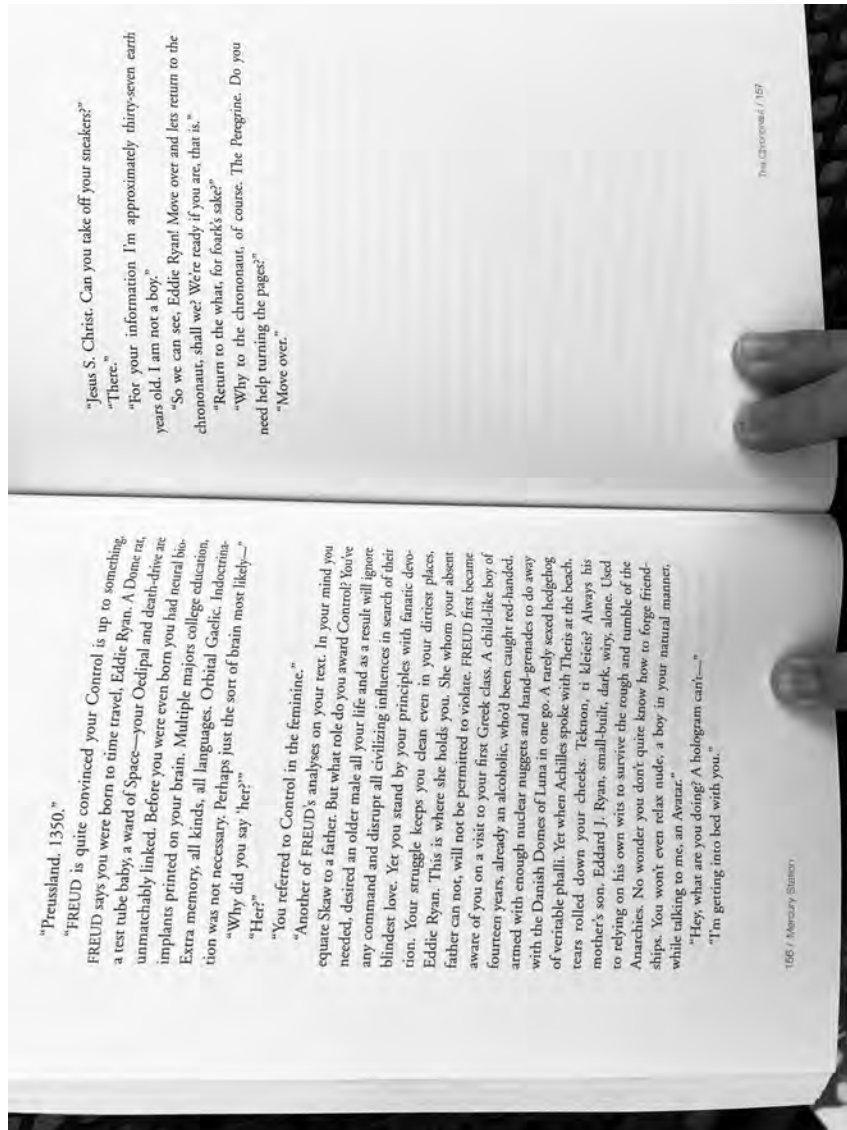 “Preussland, 1350.”
“FREUD is quite convinced your Control is up to something.
FREUD says you were born to time travel, Eddie Ryan. A Dome rat,
a test tube baby, a ward of Space—your Oedipal and death-drive are
unmatchably linked. Before you were even born you had neural bio-
implants printed on your brain. Multiple majors college education,
Extra memory, all kinds, all languages. Orbital Gaelic. Indoctrina-
tion was not necessary. Perhaps just the sort of brain most likely—”
“Why did you say ‘her?’”
“Her?”
“You referred to Control in the feminine.”
“Another of FREUD’s analyses on your text. In your mind you
equate Skaw to a father. But what role do you award Control? You’ve
needed, desired an older male all your life and as a result will ignore
any command and disrupt all civilizing influences in search of their
blindest love. Yet you stand by your principles with fanatic devo-
tion. Your struggle keeps you clean even in your dirtiest places,
Eddie Ryan. This is where she holds you. She whom your absent
father can not, will not be permitted to violate. FREUD first became
aware of you on a visit to your first Greek class. A child-like boy of
fourteen years, already an alcoholic, who’d been caught red-handed,
armed with enough nuclear nuggets and hand-grenades to do away
with the Danish Domes of Luna in one go. A rarely sexed hedgehog
of veritable phalli. Yet when Achilles spoke with Thetis at the beach,
tears rolled down your cheeks. Teknon, ti kleieis? Always his
mother’s son. Eddard J. Ryan, small-built, dark, wiry, alone. Used
to relying on his own wits to survive the rough and tumble of the
Anarchies. No wonder you don’t quite know how to forge friend-
ships. You won’t even relax nude, a boy in your natural manner,
while talking to me, an Avatar.”
“Hey, what are you doing? A hologram can’t—”
“I’m getting into bed with you.”
156 / Mercury Station
“Jesus S. Christ. Can you take off your sneakers?”
“There.”
“For your information I’m approximately thirty-seven earth
years old. I am not a boy.”
“So we can see, Eddie Ryan! Move over and lets return to the
chrononaut, shall we? We’re ready if you are, that is.”
“Return to the what, for foark’s sake?”
“Why to the chrononaut, of course. The Peregrine. Do you
need help turning the pages?”
“Move over.”
The Chrononaut / 157